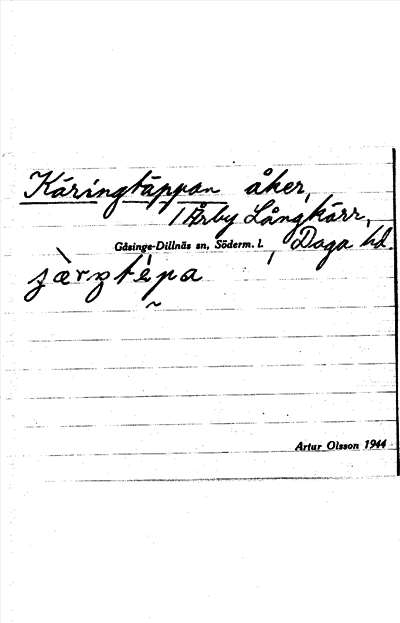 Käringtäppan åker,
1 Årby Långkärr,
Gåsinge-Dillnäs sn, Söderm. l. , Daga hd.
Artur Olsson 1944